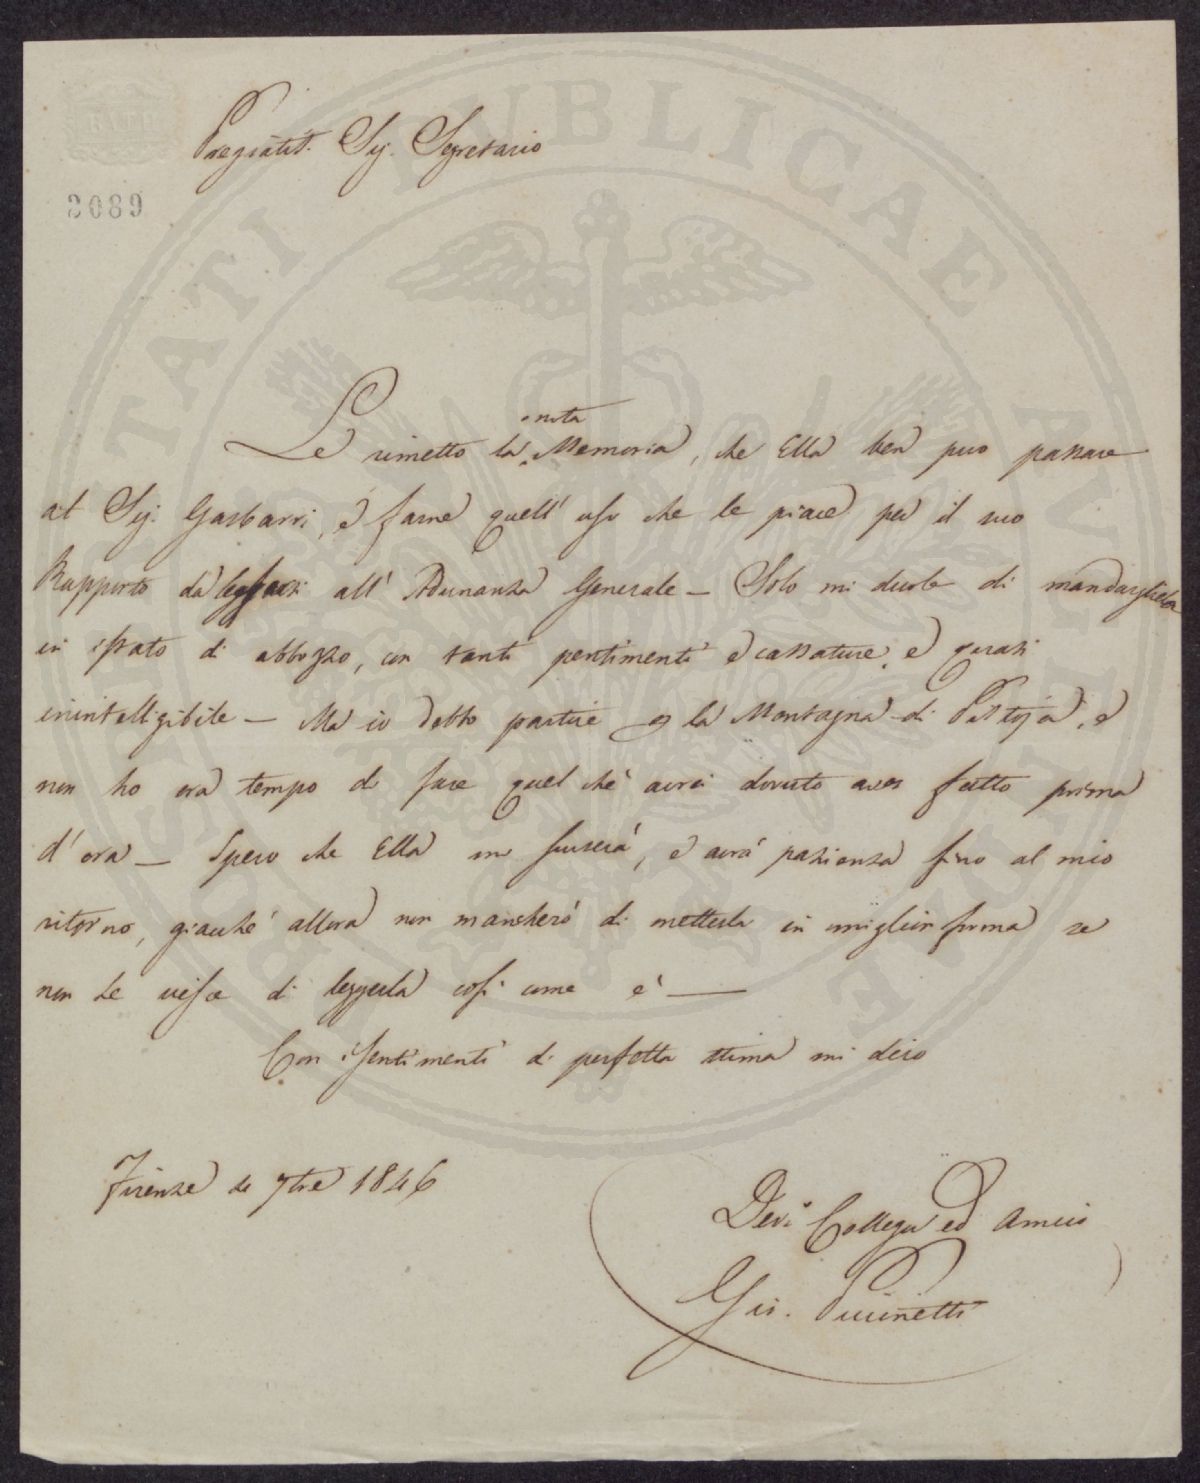 Pregiatis. Sig. Segretario
2089
nota
Le rimetto la Memoria, che Ella ben può passare
al Sig. Gasbarri, e farne quell' uso che le piace per il suo
Rapporto da leggersi all' Adunanza Generale — Solo mi duole di mandargliela
in istato di abbozzo, con tanti pentimenti e cassature, e quasi
inintelligibile — Ma io debbo partire p la Montagna di Pistoja, e
non ho ora tempo di fare quel che avrei dovuto aver fatto prima
d'ora — Spero che Ella mi scuserà, e avrà pazienza fino al mio
ritorno, giacché allora non mancherò di metterla in miglior forma se
non le riesce di leggerla così come è —
Con i sentimenti di perfetta stima mi dico
Firenze 7bre 1846
Dev.o Collega ed Amico
Gio. Puccinetti